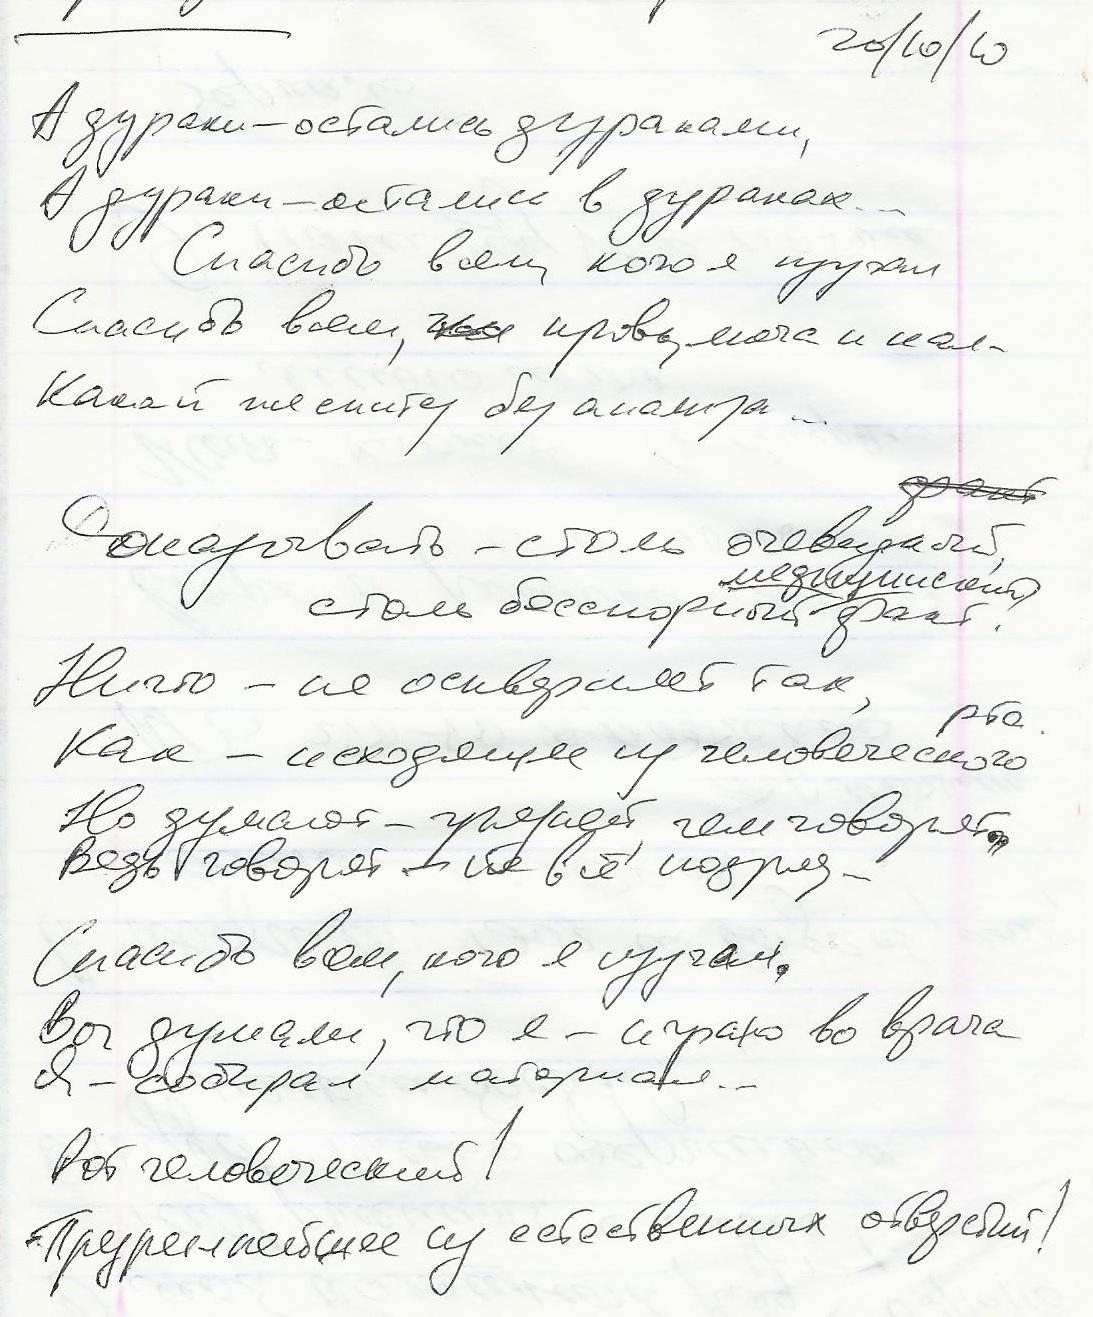 20/10/10
А дураки – остались дураками,
А дураки – остались в дураках...
Спасибо всем, кого я изучал
Спасибо всем, кровь, моча и кал –
Какой же спитч без анализа...
факт
Доказывать – столь очевидный,
медицинский
столь бесспорный факт.
Ничто – не оскверняет так,
рта.
Как – исходящее из человеческого
Но думают – грязней, чем говорят,
Ведь говорят – не всё подряд –
Спасибо всем, кого я изучал,
Вы думали, что я – играю во врача
Я – собирал материал...
Рот человеческий!
– Презреннейшее из естественных отверстий!